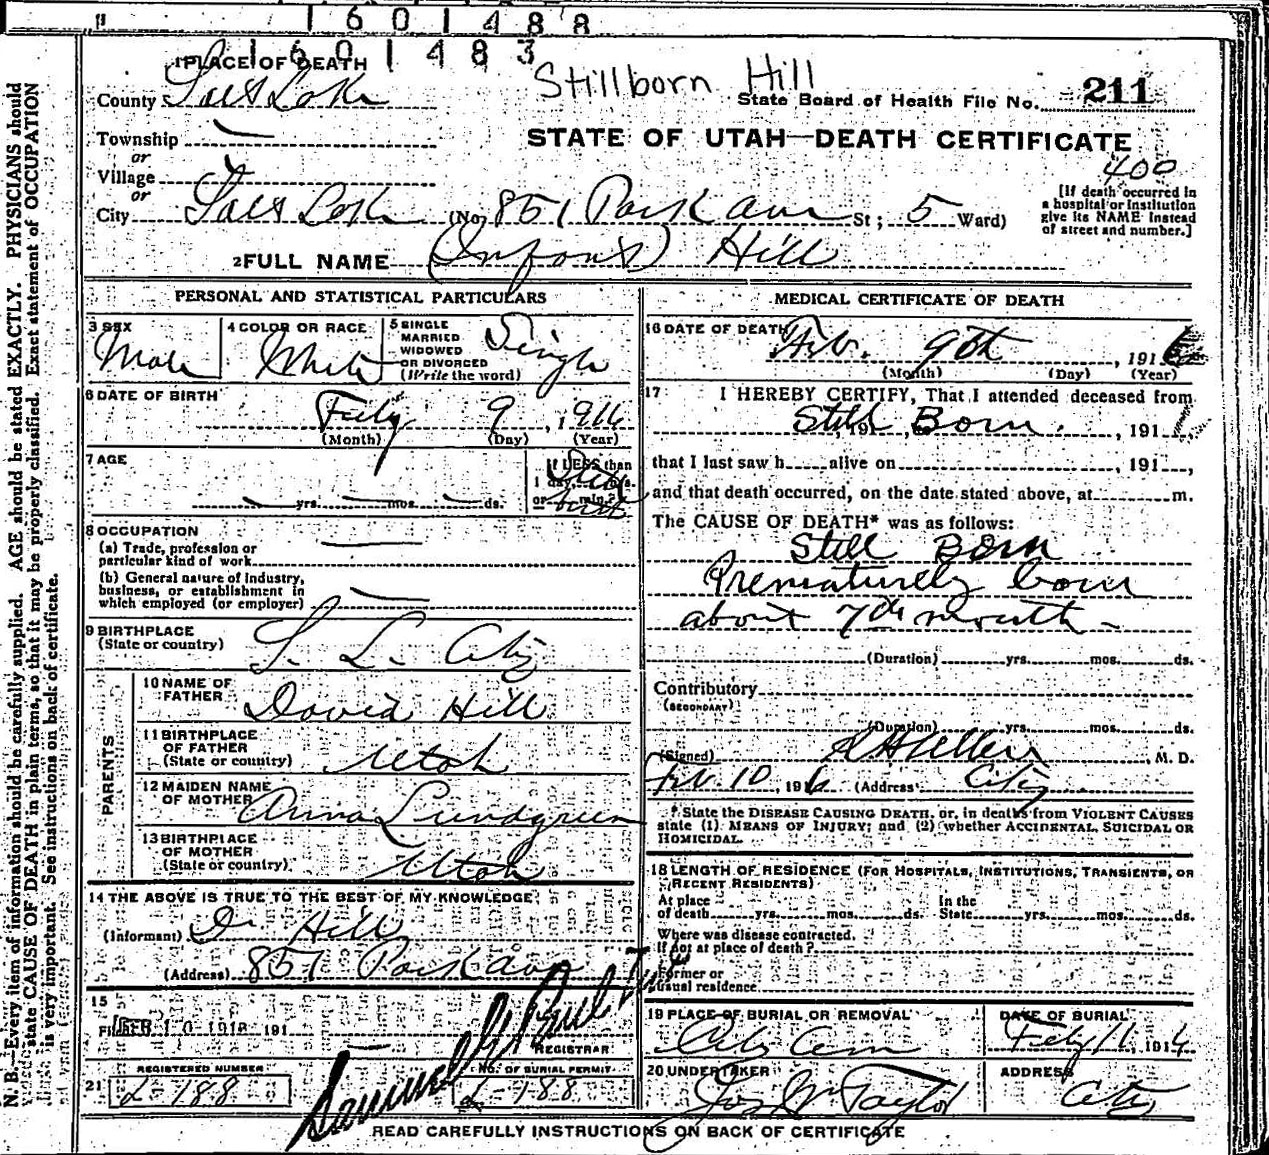 1601488
1601483
Stillborn Hill
1 PLACE OF DEATH
County Salt Lake
State Board of Health File No. 211
Township
or
Village
or
STATE OF UTAH—DEATH CERTIFICATE
400
City Salt Lake (No. 851 Park ave St; 5 Ward)
[If death occurred in
a hospital or institution
give its NAME instead
of street and number.]
2 FULL NAME (Infant) Hill
PERSONAL AND STATISTICAL PARTICULARS
3 SEX
Male
4 COLOR OR RACE
White
5 SINGLE
MARRIED
WIDOWED
OR DIVORCED
(Write the word)
Single
6 DATE OF BIRTH
Feby 9, 1916
(Month) (Day) (Year)
7 AGE
yrs. mos. ds.
If LESS than
1 day, hrs.
or min.?
birth
8 OCCUPATION
(a) Trade, profession or
particular kind of work
(b) General nature of industry,
business, or establishment in
which employed (or employer)
9 BIRTHPLACE
(State or country)
S. L. City
PARENTS
10 NAME OF
FATHER
David Hill
11 BIRTHPLACE
OF FATHER
(State or country)
Utah
12 MAIDEN NAME
OF MOTHER
Anna Lundgreen
13 BIRTHPLACE
OF MOTHER
(State or country)
Utah
14 THE ABOVE IS TRUE TO THE BEST OF MY KNOWLEDGE
(Informant) D. Hill
(Address) 851 Park ave
15
Filed FEB 10 1916 191
Samuel G Paul
REGISTRAR
21
REGISTERED NUMBER
L-188
NO. OF BURIAL PERMIT
L-188
MEDICAL CERTIFICATE OF DEATH
16 DATE OF DEATH
Feb. 9th, 1916
(Month) (Day) (Year)
17 I HEREBY CERTIFY, That I attended deceased from
Still, 191, Born., 191
that I last saw h alive on, 191,
and that death occurred, on the date stated above, at m.
The CAUSE OF DEATH* was as follows:
Still Born
Prematurely born
about 7th month -
(Duration) yrs. mos. ds.
Contributory
(SECONDARY)
(Duration) yrs. mos. ds.
(Signed) M. D.
Feb. 10, 1916 (Address) City
* State the DISEASE CAUSING DEATH, or, in deaths from VIOLENT CAUSES
state (1) MEANS OF INJURY; and (2) whether ACCIDENTAL, SUICIDAL OR
HOMICIDAL.
18 LENGTH OF RESIDENCE (FOR HOSPITALS, INSTITUTIONS, TRANSIENTS, OR
RECENT RESIDENTS)
At place
of death yrs. mos. ds.
In the
State yrs. mos. ds.
Where was disease contracted,
If not at place of death?
Former or
usual residence
19 PLACE OF BURIAL OR REMOVAL
City Cem
DATE OF BURIAL
Feby 11, 1916
20 UNDERTAKER
Jos Wm Taylor
ADDRESS
City
READ CAREFULLY INSTRUCTIONS ON BACK OF CERTIFICATE
N. B.—Every item of information should be carefully supplied. AGE should be stated EXACTLY. PHYSICIANS should
state CAUSE OF DEATH in plain terms, so that it may be properly classified. Exact statement of OCCUPATION
is very important. See instructions on back of certificate.